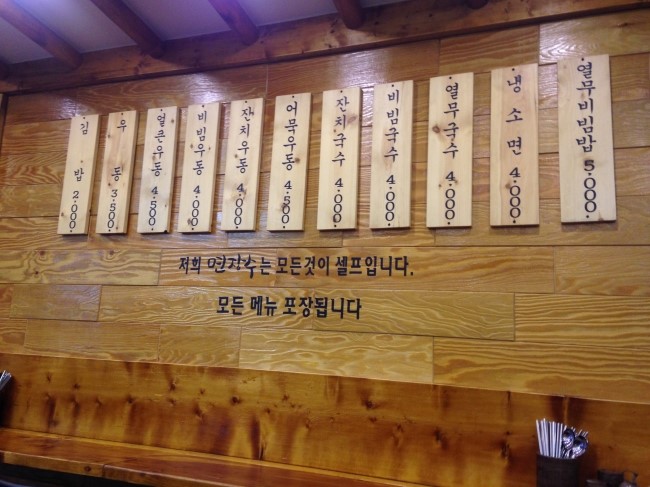 김밥 2.000
우동 3.500
얼큰우동 4.500
비빔우동 4.000
잔치우동 4.000
어묵우동 4.500
잔치국수 4.000
비빔국수 4.000
열무국수 4.000
냉소면 4.000
열무비빔밥 5.000
저희 면장수는 모든것이 셀프입니다.
모든 메뉴 포장됩니다